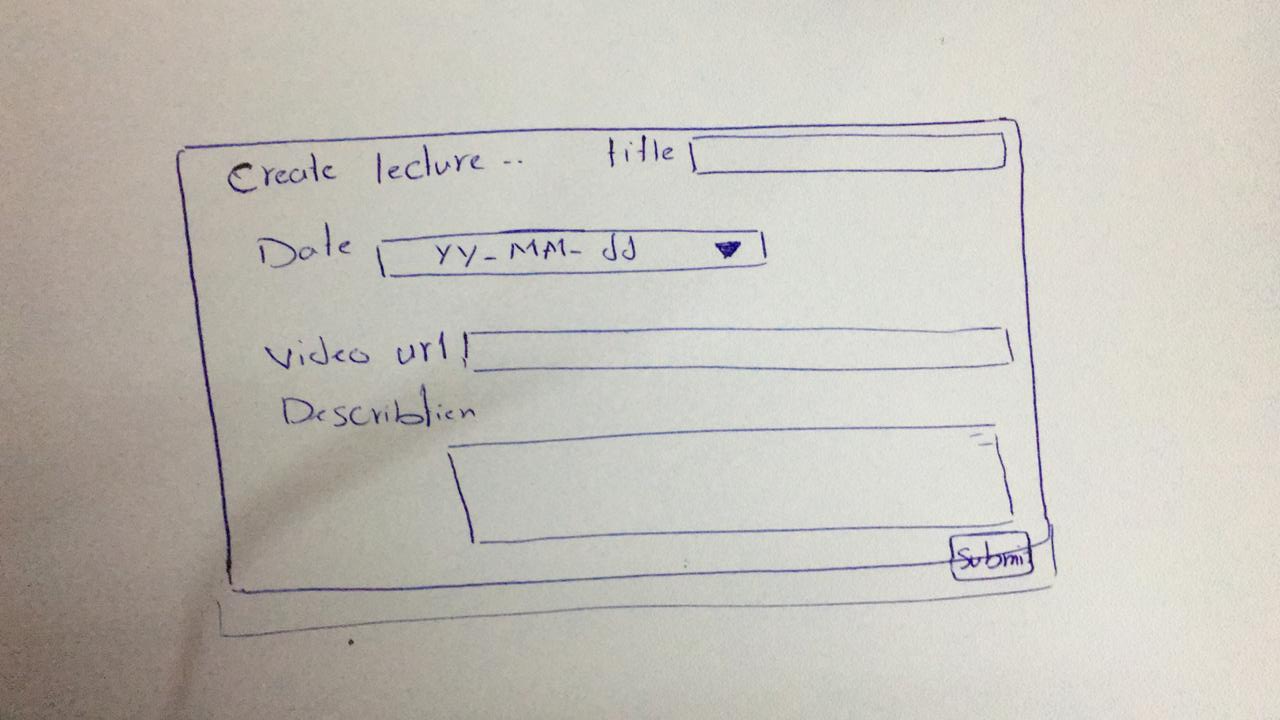 Create lecture .. title
Date YY_MM_dd
Video url
Describtien
Submi